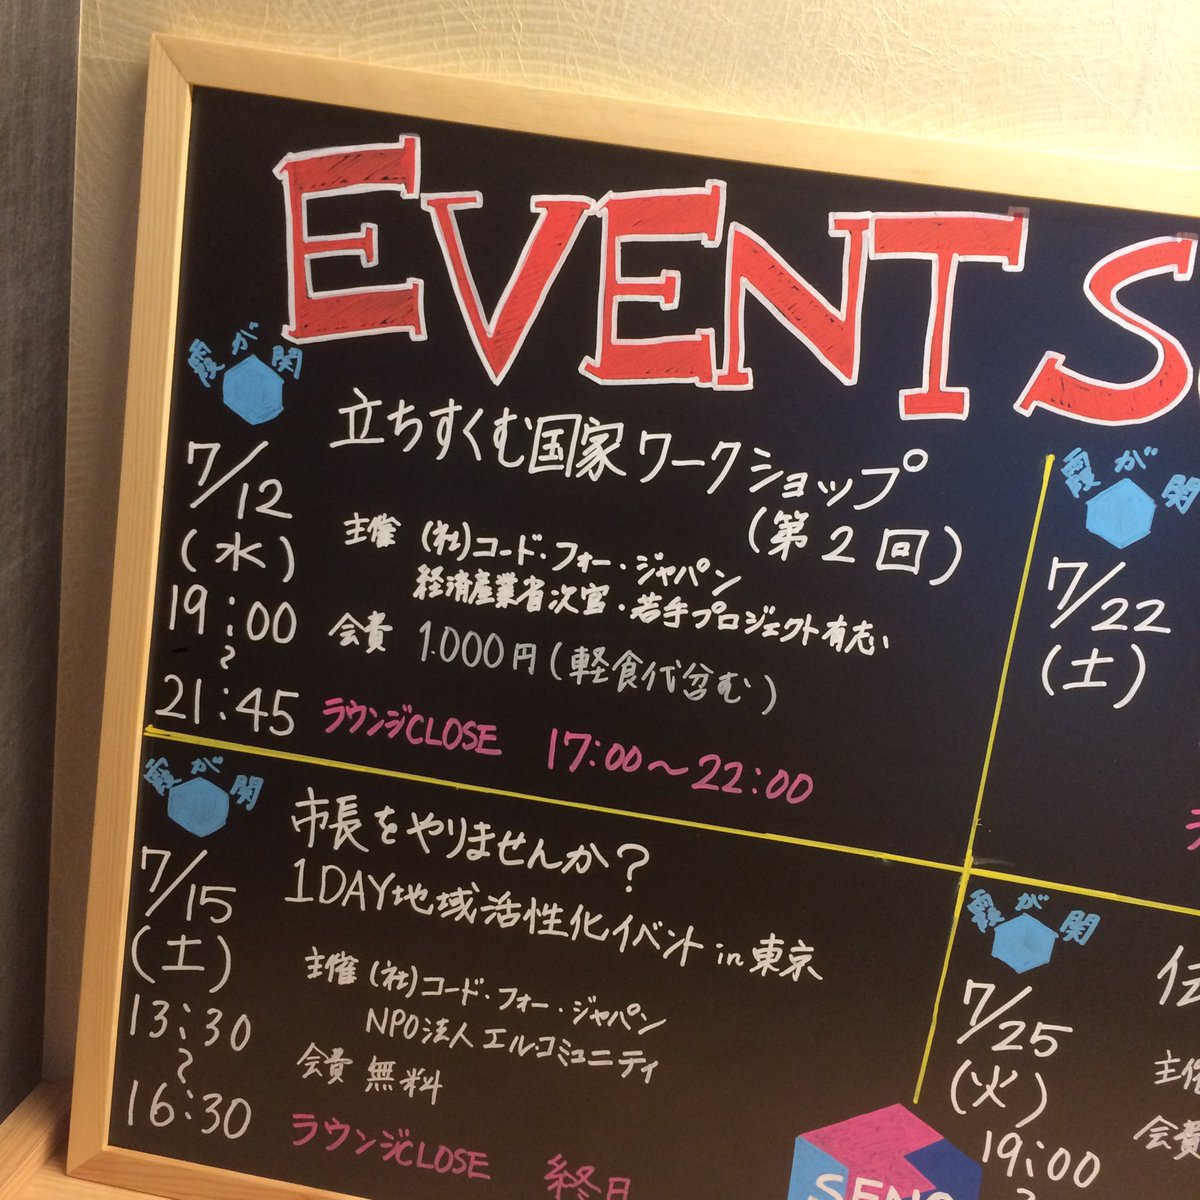 EVENT S
霞が関
7/12
(水)
19:00
~
21:45
立ちすくむ国家ワークショップ
(第2回)
主催 (社)コード・フォー・ジャパン
経済産業省次官・若手プロジェクト有志
会費 1.000円(軽食代含む)
ラウンジCLOSE 17:00~22:00
霞が関
7/15
(土)
13:30
~
16:30
市長をやりませんか?
1DAY地域活性化イベント in 東京
主催 (社)コード・フォー・ジャパン
NPO法人エル・コミュニティ
会費 無料
ラウンジCLOSE 終日
霞が関
7/22
(土)
霞が関
7/25
(火)
19:00
主催
会費
SENQ